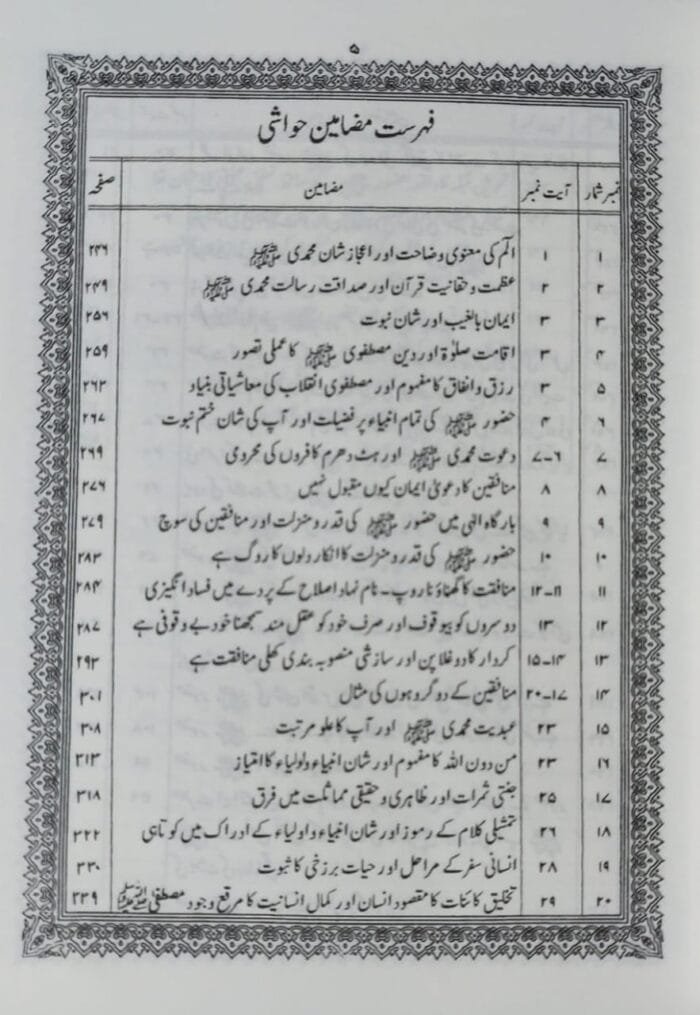 ۵
فہرست مضامین حواشی
نمبر شمار آیت نمبر مضامین صفحہ
۱ ۱ الٓمٓ کی معنوی وضاحت اور اعجاز شان محمدی ﷺ ۲۴۶
۲ ۲ عظمت و حقانیت قرآن اور صداقت رسالت محمدی ﷺ ۲۴۹
۳ ۳ ایمان بالغیب اور شان نبوت ۲۵۶
۴ ۳ اقامت صلوٰۃ اور دین مصطفوی ﷺ کا عملی تصور ۲۵۹
۵ ۳ رزق و انفاق کا مفہوم اور مصطفوی انقلاب کی معاشیاتی بنیاد ۲۶۳
۶ ۴ حضور ﷺ کی تمام انبیاء پر فضیلت اور آپ کی شان ختم نبوت ۲۶۷
۷ ۶-۷ دعوت محمدی ﷺ اور ہٹ دھرم کافروں کی محرومی ۲۶۹
۸ ۸ منافقین کا دعویٰ ایمان کیوں مقبول نہیں ۲۷۶
۹ ۹ بارگاہ الٰہی میں حضور ﷺ کی قدر و منزلت اور منافقین کی سوچ ۲۷۹
۱۰ ۱۰ حضور ﷺ کی قدر و منزلت کا انکار دلوں کا روگ ہے ۲۸۳
۱۱ ۱۱-۱۲ منافقت کا گھناؤنا روپ - نام نہاد اصلاح کے پردے میں فساد انگیزی ۲۸۴
۱۲ ۱۳ دوسروں کو بیوقوف اور صرف خود کو عقل مند سمجھنا خود بے وقوفی ہے ۲۸۷
۱۳ ۱۴-۱۵ کردار کا دوغلا پن اور سازشی منصوبہ بندی کھلی منافقت ہے ۲۹۳
۱۴ ۱۷-۲۰ منافقین کے دو گروہوں کی مثال ۳۰۱
۱۵ ۲۳ عبدیت محمدی ﷺ اور آپ کا علو مرتبت ۳۰۸
۱۶ ۲۳ من دون اللہ کا مفہوم اور شان انبیاء و اولیاء کا امتیاز ۳۱۳
۱۷ ۲۵ جنتی ثمرات اور ظاہری و حقیقی مماثلت میں فرق ۳۱۸
۱۸ ۲۶ تمثیلی کلام کے رموز اور شان انبیاء و اولیاء کے ادراک میں کوتاہی ۳۲۲
۱۹ ۲۸ انسانی سفر کے مراحل اور حیات برزخی کا ثبوت ۳۳۰
۲۰ ۲۹ تخلیق کائنات کا مقصود انسان اور کمال انسانیت کا مرقع وجود مصطفیٰ ﷺ ۲۳۹